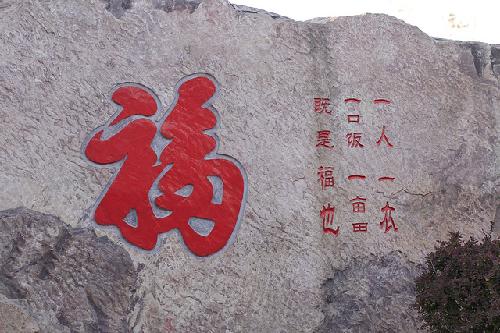 一人一衣
一口饭一亩田
既是福也
福